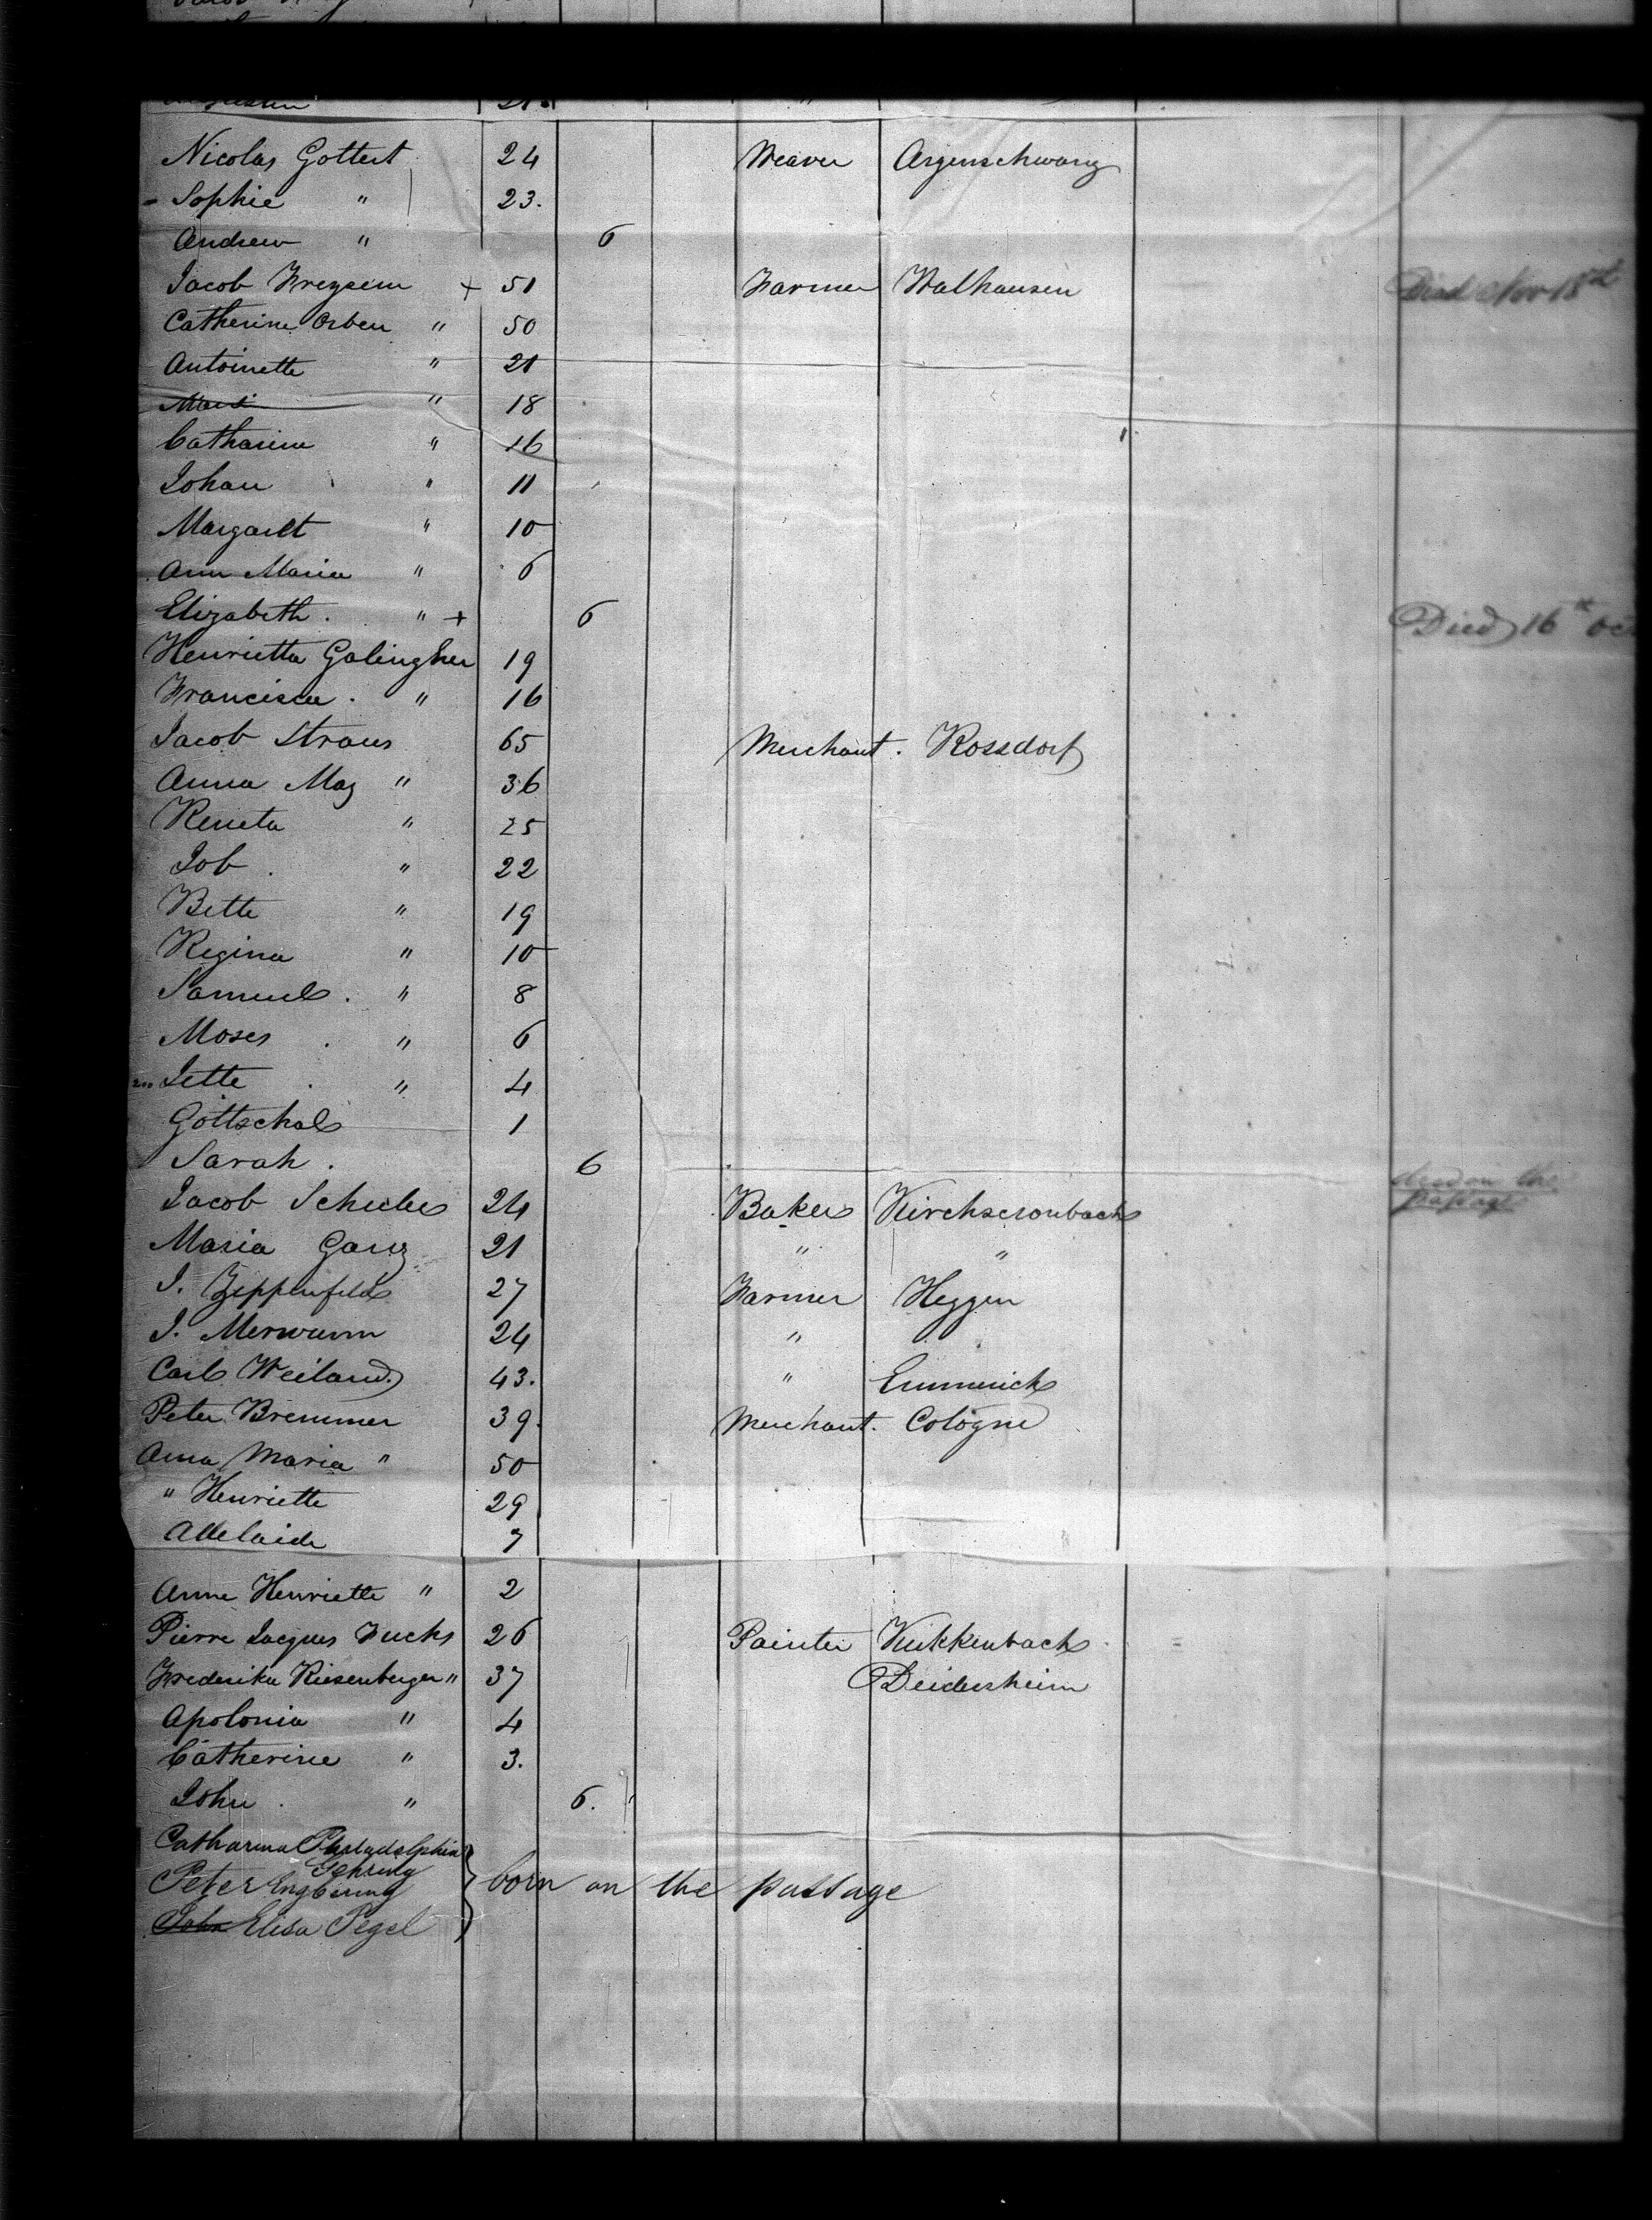 Nicolas Gottert 24 Weaver Argenschwang
Sophie " 23.
Andrew " 6
Jacob Freysem + 51 Farmer Walhausen Died Nov 18th
Catherine Orben " 50
Antoinette " 21
Mari " 18
Catharina " 16
Johan " 11
Margaret " 10
Ann Maria " 6
Elizabeth. " + 6 Died 16th Oct
Henrietta Golingher 19
Francisca. " 16
Jacob Straus 65 Merchant. Rossdorf
Anna Mag " 36
Reneta " 25
Job. " 22
Bette " 19
Regina " 10
Samuel. " 8
Moses. " 6
Jette. " 4
Gottschal 1
Sarah. 6 died on the
passage
Jacob 24 Baker
Maria Ganz 21 " "
J. Zeppenfeld 27 Farmer Heggen
J. 24 "
Carl Weiland 43. " Emmerich
Peter Bremmer 39. Merchant. Cologne
Anna Maria " 50
" Henriette 29
Adelaide 7
Anne Henriette " 2
Pierre Jacques Fuchs 26 Painter
Frederika Riesenberger " 37 Deidesheim
Apolonia " 4
Catherine " 3.
John. " 6.
Catharina Philadelphia
Gehring
Peter Engbering born on the passage
John Elisa Pegel